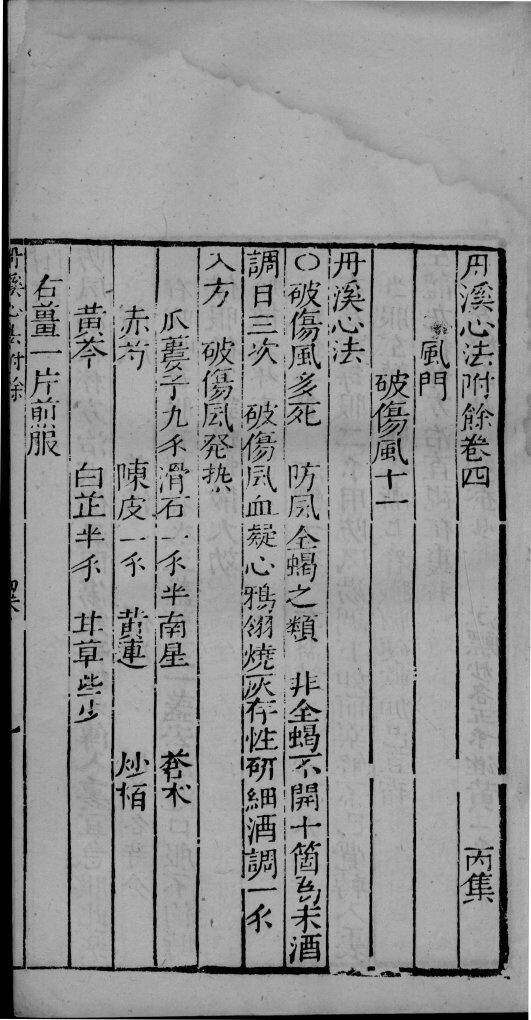 丹溪心法附餘卷四 丙集
風門
破傷風十一
丹溪心法
○破傷風多死 防风全蝎之類 非全蝎不開十箇為末酒
調日三次 破傷风血凝心鴉翎燒灰存性研細酒調一禾
入方 破傷风発热
瓜蔞子九禾滑石一禾半南星 蒼术
赤芍 陳皮一禾 黄連 炒栢
黄芩 白芷半禾 甘草些少
右薑一片煎服
丹溪心法附餘